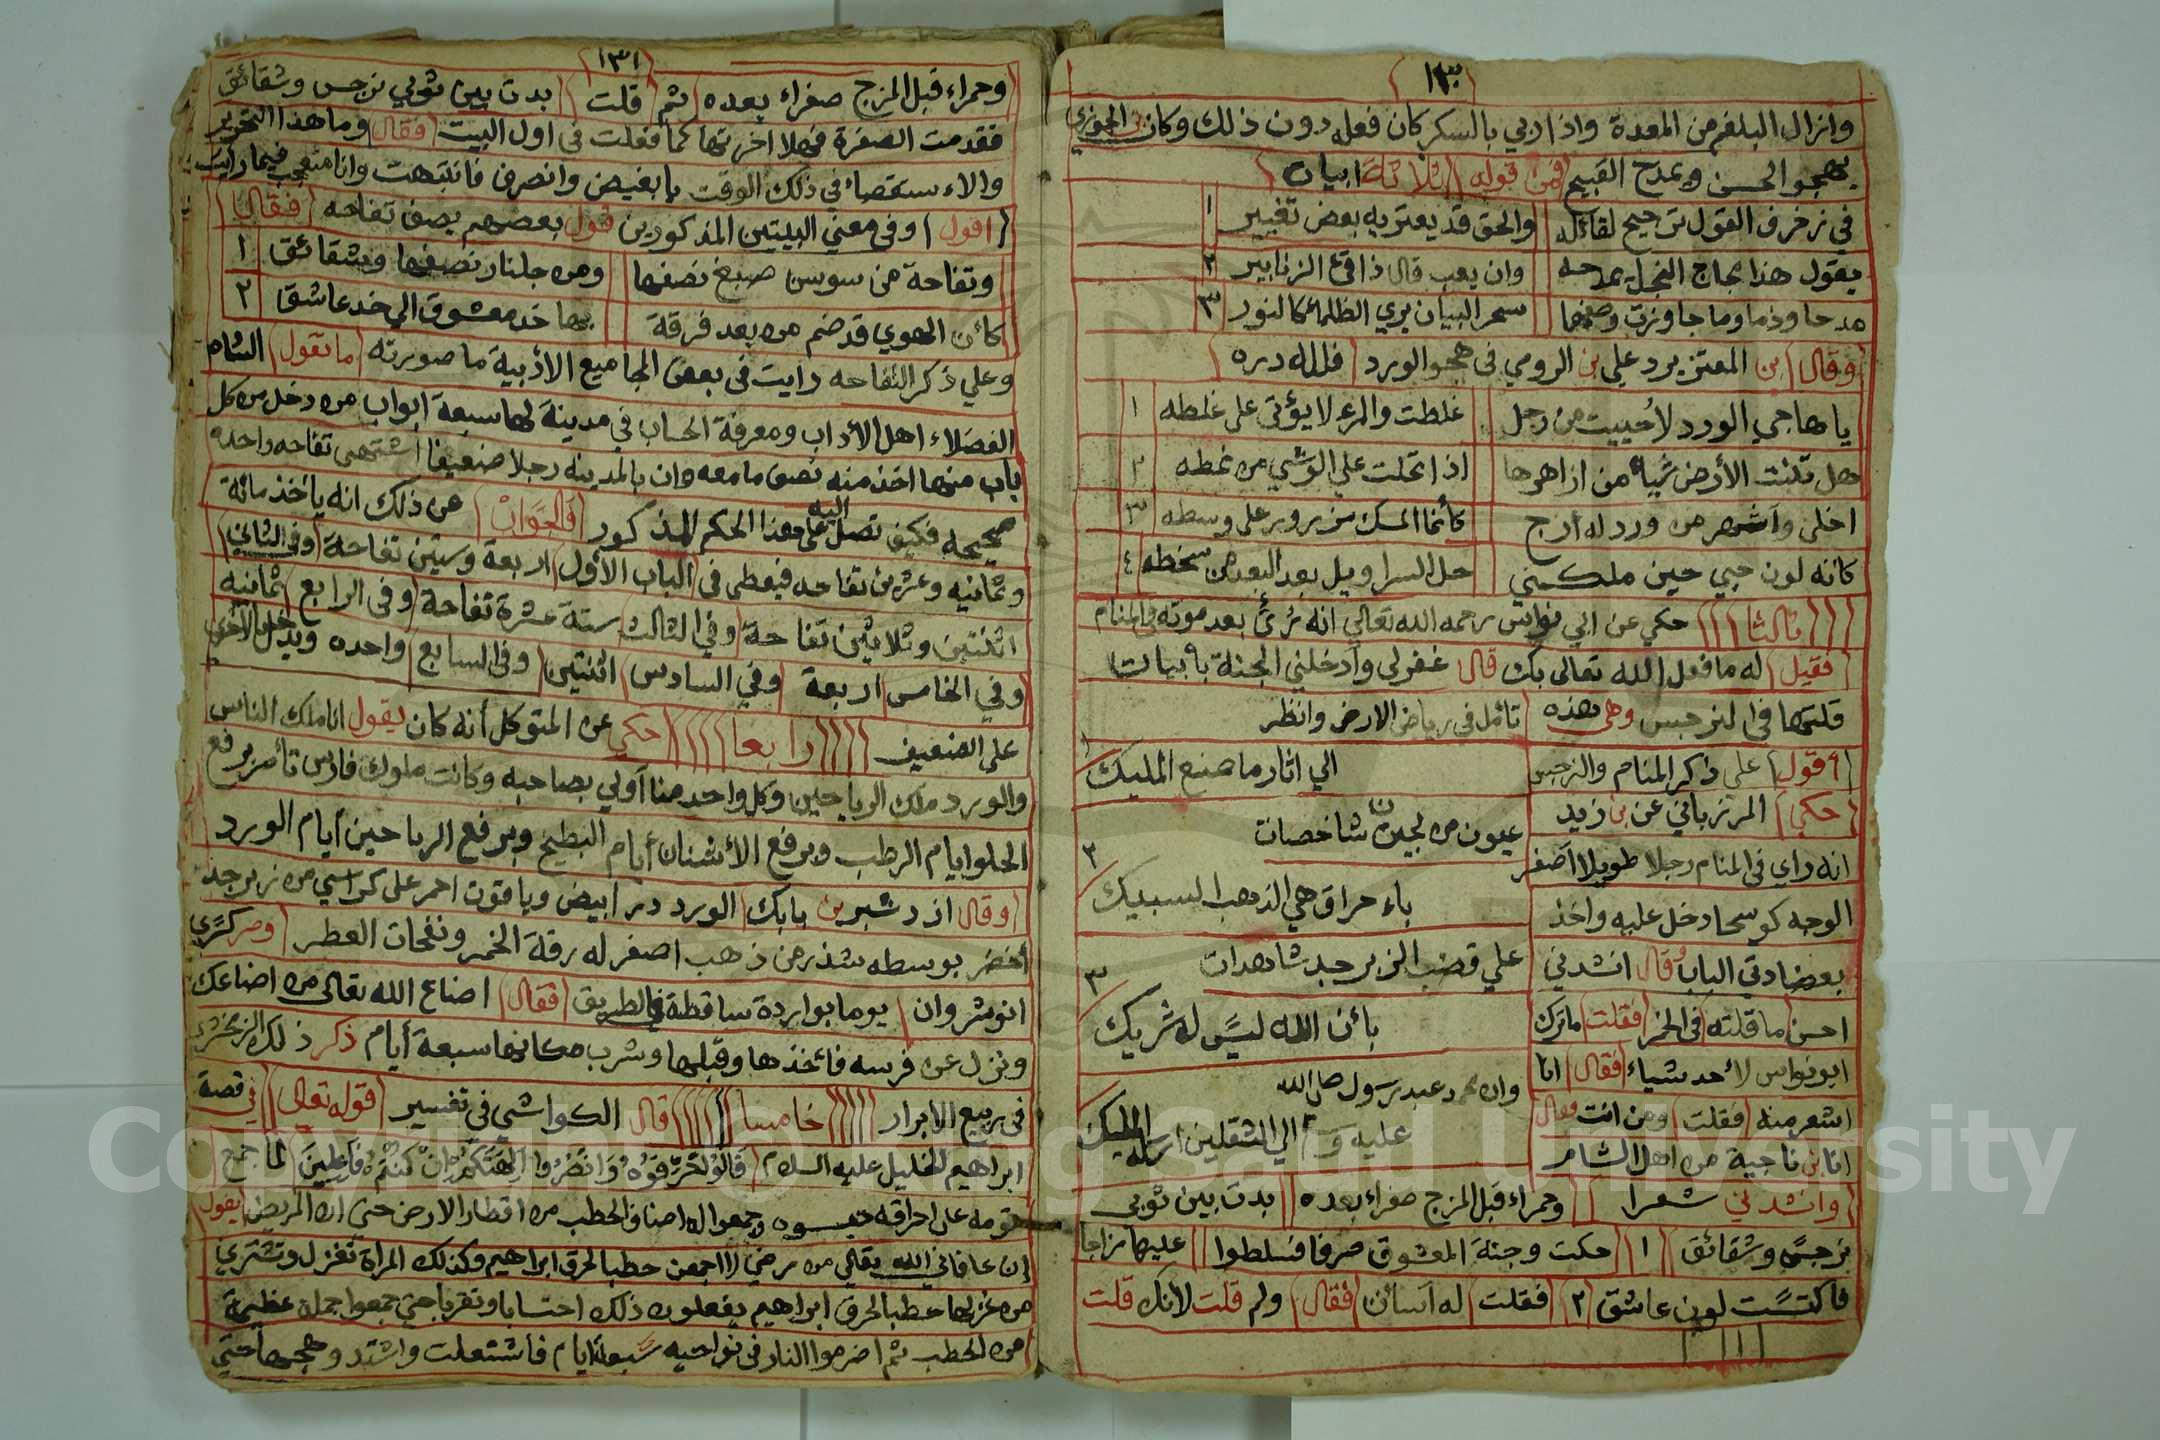 ١٣٠
وانزال البلغم من المعدة واذا ربي بالسكر كان فعله دون ذلك وكان الجوزي
يهجوا الحسن ويمدح القبيح فمن قوله ثلاثة ابيات
في زخرف القول ترجيح لقائله والحق قد يعتريه بعض تغيير ١
يقول هذا مجاج النحل يمدحه وان يعب قال ذا قئ الزنابير ٢
مدحا وذما وما جاوزت وصفهما سحر البيان يري الظلماء كالنور ٣
وقال بن المعتز يرد علي بن الرومي في هجو الورد فلله دره
يا هاجي الورد لا حييت من رجل غلطت والمرء لا يؤتى على غلطه ١
هل تنبت الأرض شياء من ازاهرها اذا تحلت علي الوشي من نمطه ٢
احلى واشهر من ورد له ارج كأنما المسك مزرور على وسطه ٣
كانه لون حبي حين ملكني حل السراويل بعد البعد من سخطه ٤
ثالثا حكي عن ابي نواس رحمه الله تعالي انه رُئي بعد موته في المنام
فقيل له ما فعل الله تعالى بك قال غفر لي وأدخلني الجنة بأبيات
قلتها في النرجس وهي هذه تأمل في رياض الارض وانظر
أقول علي ذكر المنام والنرجس الي اثار ما صنع المليك ١
حكي المرزباني عن بن زيد
عيون من لجين شاخصات ٢
انه راي في المنام رجلا طويلا اصفر
الوجه كوسحا دخل عليه واخذ باحراق هي الذهب السبيك
بعضادتي الباب وقال انشدني علي قضب الزبرجد شاهدات ٣
احسن ما قلته في الخمر فقلت ما ترك بأن الله ليس له شريك
ابو نواس لأحد شياء فقال انا
وان محمد عبد رسول صلى الله
اشعر منه فقلت ومن انت فقال عليه وسلم الي الثقلين ارسله المليك
انا بن ناجية من اهل الشام
وانشدني شعرا وحمراء قبل المزج صفراء بعده بدت بين ثوبي
نرجس وشقائق ١ حكت وجنة المعشوق صرفا فسلطوا عليها مزاجا
فاكتست لون عاشق ٢ فقلت له اسأت فقال ولم قلت لأنك قلت
١٣١
وحمراء قبل المزج صفراء بعده ثم قلت بدت بين ثوبي نرجس وشقائق
فقدمت الصفرة فهلا اخرتها كما فعلت في اول البيت فقال وما هذا التحرير
والاء ستقصاء في ذلك الوقت يا بغيض وانصرف فانتبهت وانا متعجب فيما رايت
اقول وفي معني البيتين المذكورين قول بعضهم يصف تفاحه فقال
وتفاحة من سوسن صبغ نصفها ومن جلنار نصفها وشقائق ١
كأن الهوي قد ضم من بعد فرقة بها خد معشوق الي خد عاشق ٢
وعلي ذكر التفاحه رايت في بعض المجاميع الأدبية ما صورته ما تقول السام
الفضلاء اهل الأداب ومعرفة الحساب في مدينة لها سبعة ابواب من دخل من كل
باب منها اخذ منه نصف ما معه وان بالمدينه رجلا ضعيفا اشتهى تفاحه واحده
صحيحه فكيف تصل اليه على هذا الحكم المذكور فالجواب عن ذلك انه ياخذ مائة
وثمانيه وعشرين تفاحه فيعطي في الباب الأول اربعة وستين تفاحة وفي الثاني
اثنتين وثلاثين تفاحة وفي الثالث ستة عشرة تفاحة وفي الرابع ثمانيه
وفي الخامس اربعة وفي السادس اثنتين وفي السابع واحده ويدخل بالأخرى
على الضعيف رابعا حكي عن المتوكل أنه كان يقول انا ملك الناس
والورد ملك الرياحين وكل واحد منا أولي بصاحبه وكانت ملوك فارس تأمر برفع
الحلوا ايام الرطب وبرفع الأشنان أيام البطيخ وبرفع الرياحين أيام الورد
وقال ازدشير بن بابك الورد در ابيض وياقوت احمر على كراسي من زبرجد
أخضر بوسطه شذر من ذهب اصفر له رقة الخمر ونفحات العطر ومر كسري
انوشروان يوما بواردة ساقطة في الطريق فقال اضاع الله تعالى من اضاعك
ونزل عن فرسه فأخذها وقبلها وشرب مكانها سبعة أيام ذكر ذلك الزمخشري
في ربيع الابرار خامسا قال الكواشي في تفسير قوله تعالي في قصة
ابراهيم الخليل عليه السلام قالو لحرقوه وانصروا الهتكم ان كنتم فاعلين لما جمع
قومه على احراقه حبسوه وجمعوا له اصناف الحطب من اقطار الارض حتى ان المريض يقول
إن عافاني الله تعالي من مرضي لاجمعن حطبا لحرق ابراهيم وكذلك المراة تغزل وتشتري
من غزلها حطبا لحرق ابراهيم يفعلون ذلك احتسابا وتقربا حتى جمعوا جملة عظيمة
من الحطب ثم اضرموا النار في نواحيه سبعة ايام فاشتعلت واشتد وهجها حتي